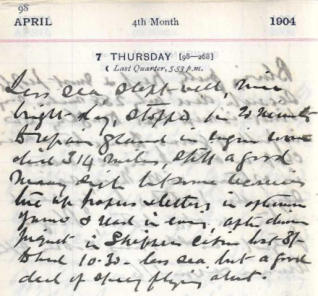 98
APRIL 4th Month 1904
7 THURSDAY [98—268]
☾ Last Quarter, 5.53 p.m.
Less sea slept well, nice
bright day, stopped for 20 minutes
to repair gland in engine room
did 314 miles, still a good
many sick but some exercise
tied up papers & letters in afternoon
& read in evening, after dinner
piquet in Skippers cabin lost 8/-
to bed 10.30 – less sea but a good
deal of spray flying about.